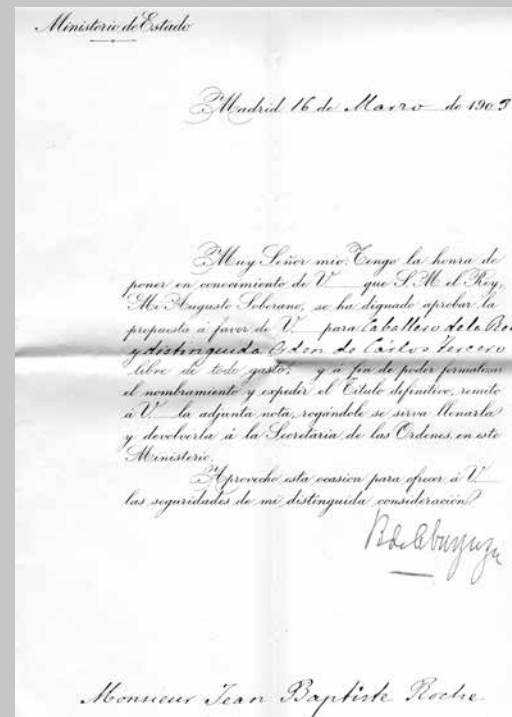 Ministerio de Estado
Madrid 16 de Marzo de 1903
Muy Señor mio: Tengo la honra de
poner en conocimiento de V que S. M. el Rey,
Mi Augusto Soberano, se ha dignado aprobar la
propuesta á favor de V para Caballero de la
y distinguida Orden de Cárlos Tercero
libre de todo gasto; y á fin de poder formalizar
el nombramiento y expedir el Titulo definitivo, remito
á V la adjunta nota, rogándole se sirva llenarla
y devolverla á la Secretaria de las Ordenes en este
Ministerio.
Aprovecho esta ocasion para ofrecer á V
las seguridades de mi distinguida consideración
Monsieur Jean Baptiste Roche